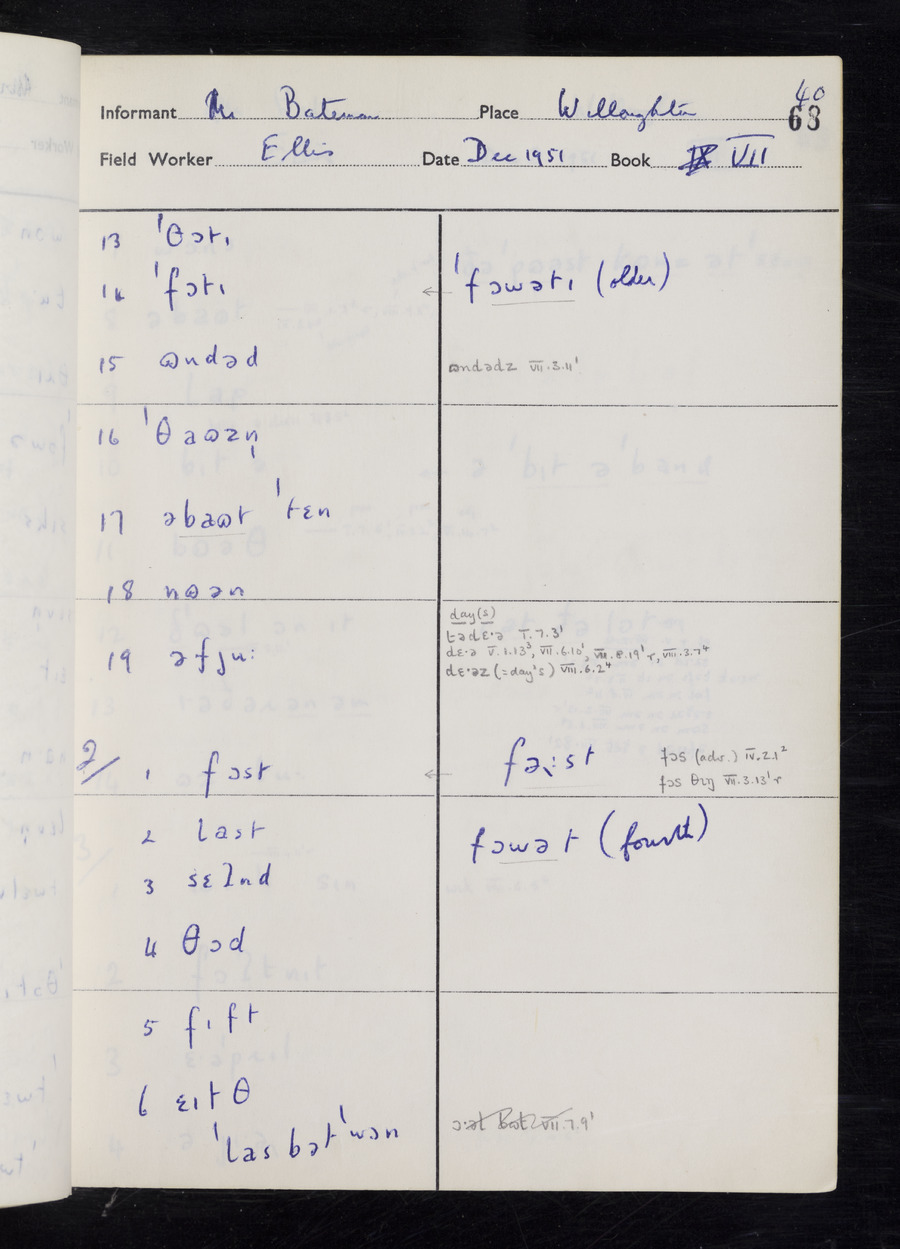 40
Informant Mr Bateman Place Willoughton 63
Field Worker Ellis Date Dec 1951 Book VII
13 ˈθɔtɪ
14 ˈfɔtɪ ← ˈfɔwətɪ (older)
15 ɷndəd ɷndədz VII.3.11¹
16 ˈθaɷzn̩
17 əbaɷt ˈtɛn
18 nɷən
day(s)
tədɛ·ə I.7.3¹
19 əfjuː dɛ·ə V.1.13³, VII.6.10¹, VII.8.19¹ r, VIII.3.7⁴
dɛ·əz (=day's) VIII.6.2⁴
2/ 1 fɔst ← fəːst fɔs (adv.) IV.2.1²
fɔs θɪŋ VII.3.13¹ r
2 last fɔwət (fourth)
3 sɛʔnd
4 θɔd
5 fɪft
6 ɛɪtθ
ˈlas bətˈwɔn ɔːət VII.7.9¹